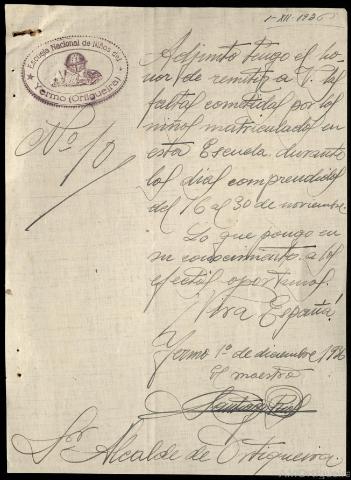 1-XII-1936
Escuela Nacional de Niños del
Yermo (Ortigueira)
Nº 10
Adjunto tengo el ho-
nor de remitir a V. las
faltas cometidas por los
niños matriculados en
esta Escuela durante
los dias comprendidos
del 16 al 30 de noviembre.
Lo que pongo en
su conocimiento a los
efectos oportunos.
Viva España!
Yermo 1º de diciembre 1936
El maestro
Santiago
Sr. Alcalde de Ortigueira.